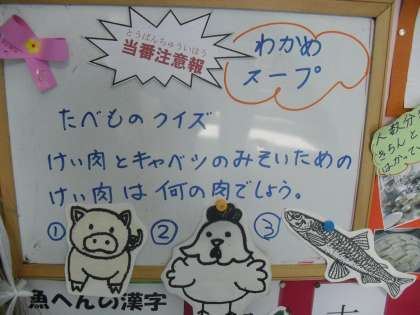 とうばんちゅういほう
当番注意報
わかめ
スープ
たべものクイズ
けい肉とキャベツのみそいための
けい肉は何の肉でしょう。
① ② ③
人数分
きちんと
はかって
魚へんの漢字